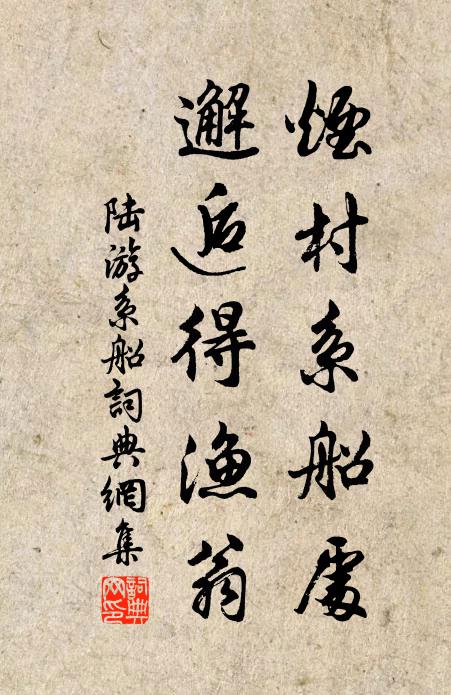 煙村系船處
邂逅得漁翁
陆游系船詞典網集
詞典網印